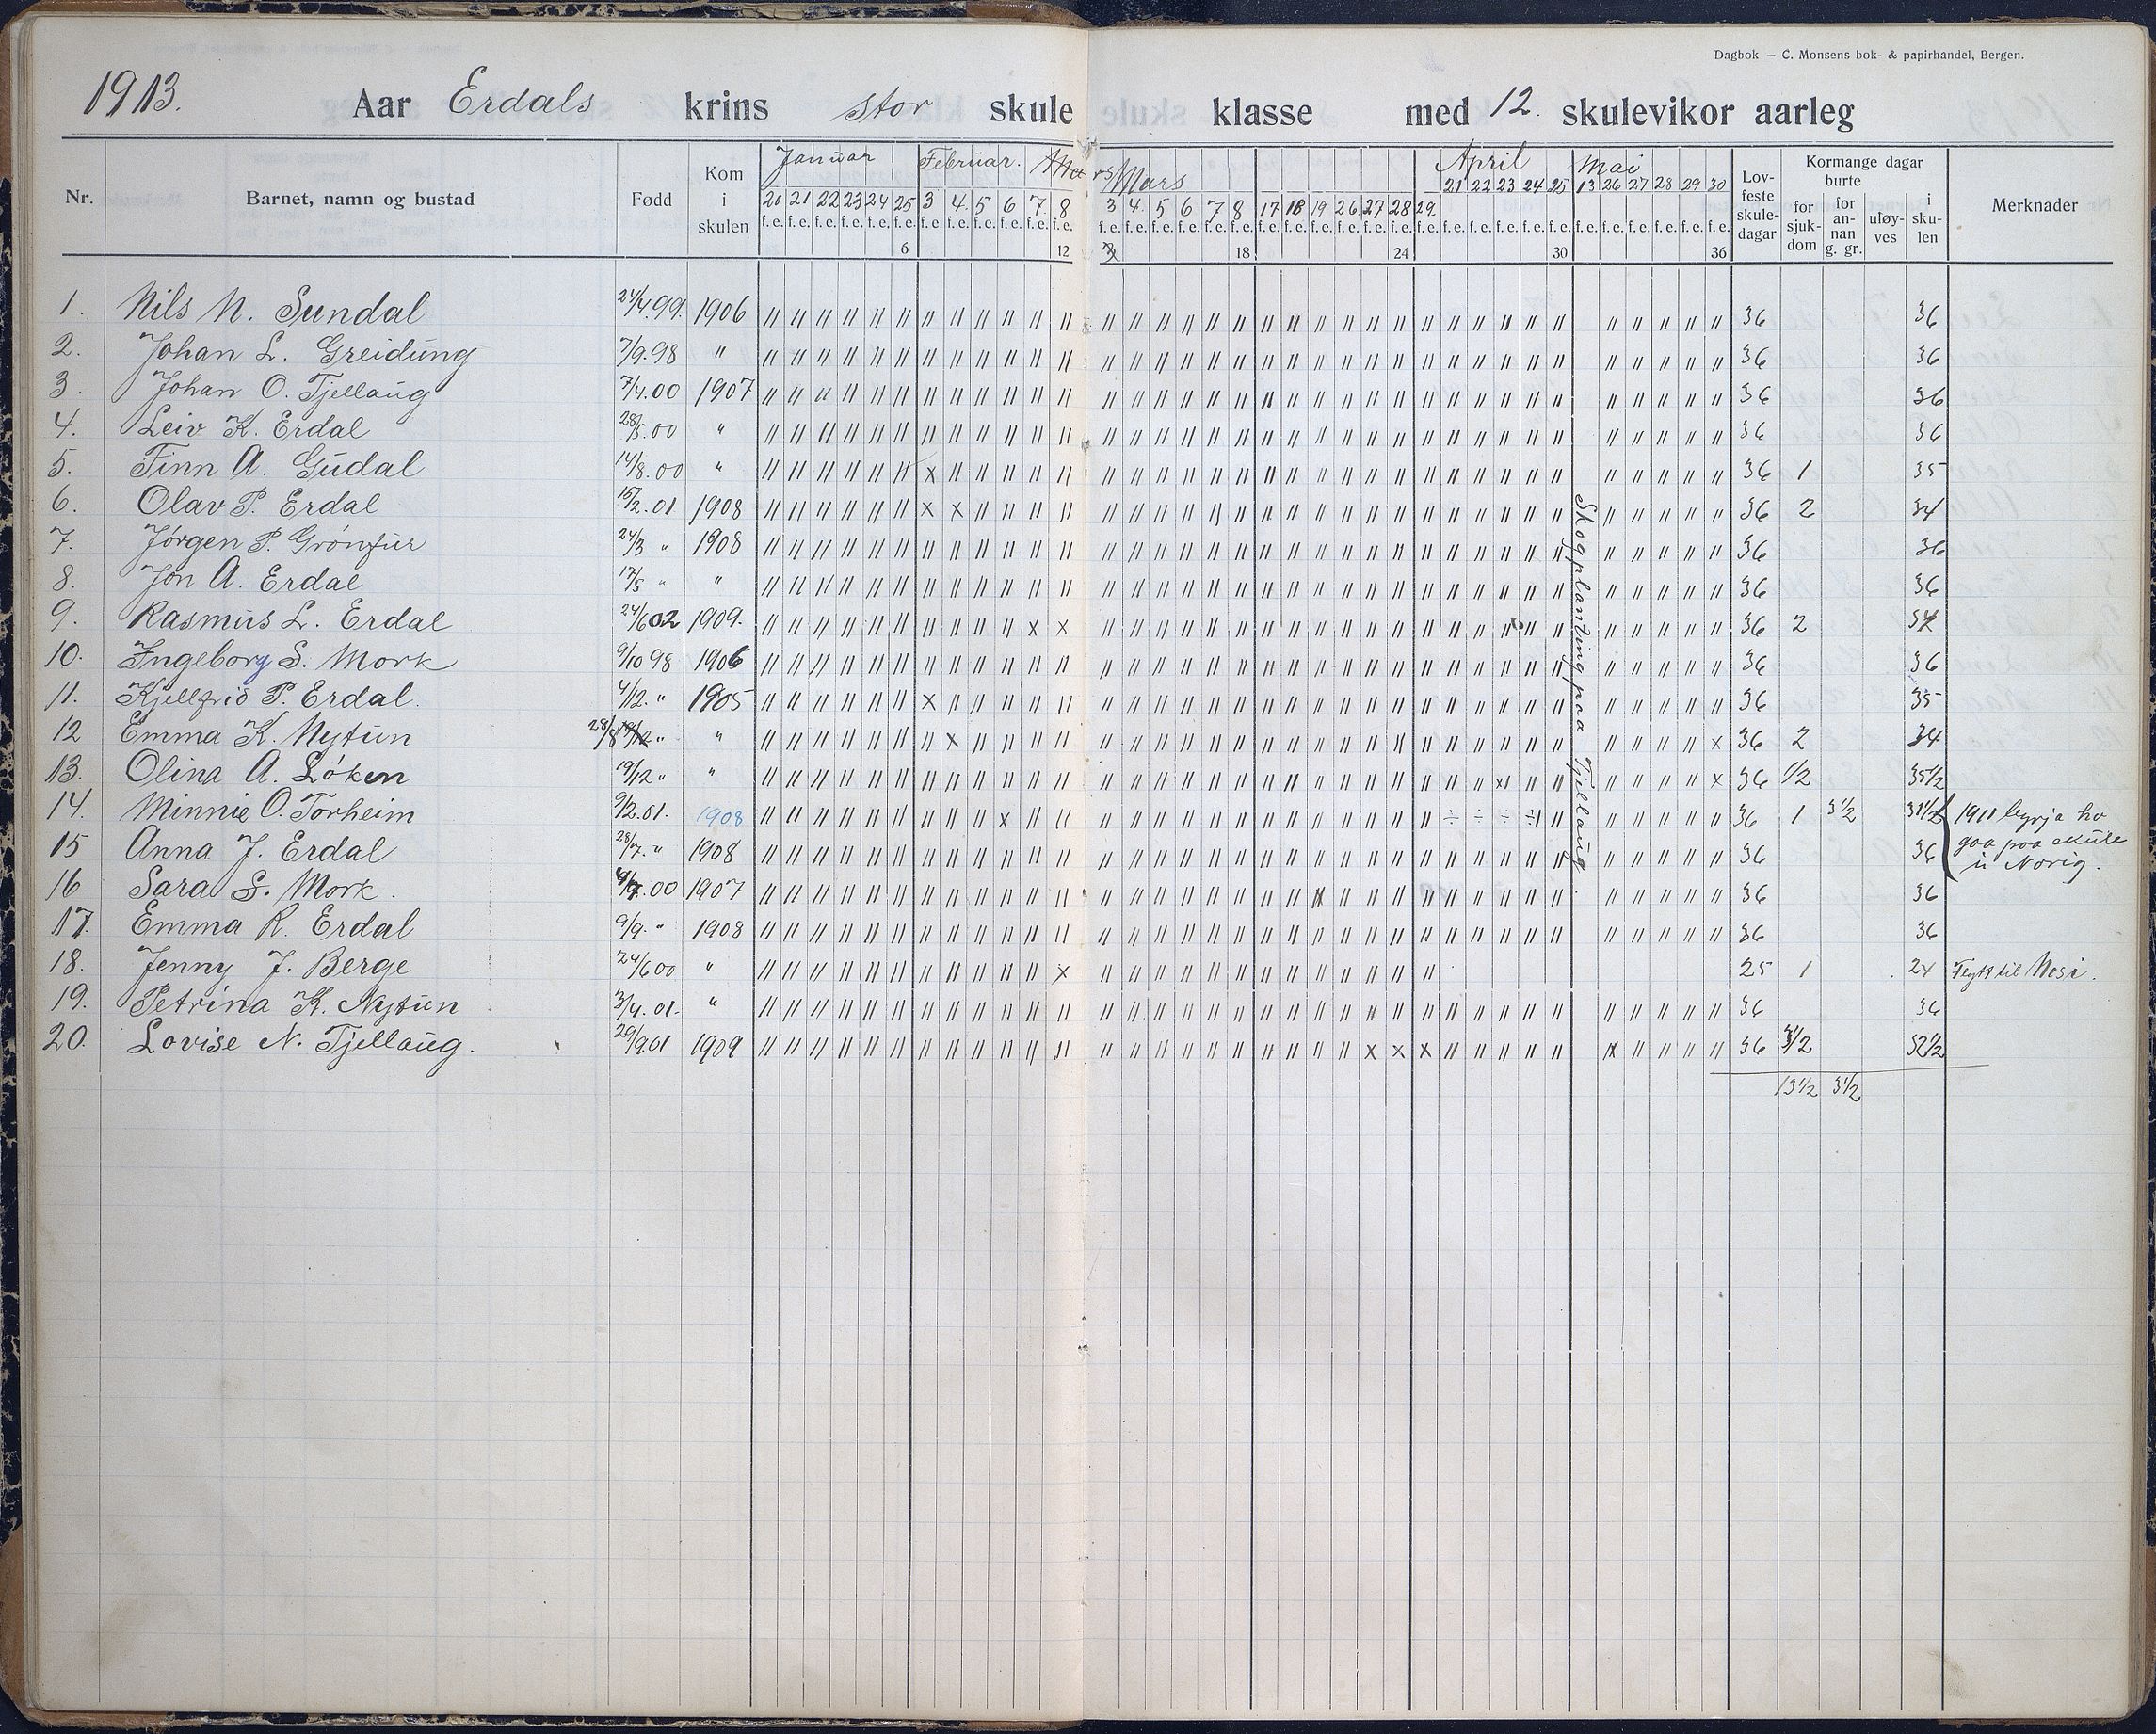 Dagbok — C. Monsens bok- & papirhandel, Bergen.
1913. Aar Erdals krins stor skule klasse med 12. skulevikor aarleg
Nr. Barnet, namn og bustad Fødd Kom i skulen Januar Februar. Mars Mars April Mai Lovfeste skuledagar Kormange dagar burte for sjukdom for annan g. gr. uløyves i skulen Merknader
20 21 22 23 24 25 3 4. 5 6 7. 8 3 4. 5 6 7 8 17 18 19 26 27 28 29. 21 22 23 24 25 13 26 27 28 29 30
f. e. f. e. f. e. f. e. f. e. f. e. f. e. f. e. f. e. f. e. f. e. f. e. f. e. f. e. f. e. f. e. f. e. f. e. f. e. f. e. f. e. f. e. f. e. f. e. f. e. f. e. f. e. f. e. f. e. f. e. f. e. f. e. f. e. f. e. f. e. f. e.
6 12 18 24 30 36
1. Nils N. Sundal 24/4.99. 1906 36 36
2. Johan L. Greidung 7/9.98 " 36 36
3. Johan O. Tjellaug 7/4.00 1907 36 36
4. Leiv K. Erdal 28/5.00 " 36 36
5. Finn A. Gudal 14/8.00 " x 36 1 35
6. Olav P. Erdal 15/2.01 1908 x x 36 2 34
7. Jørgen P. Grønfur 24/3 " 1908 36 36
8. Jon A. Erdal 17/5 " " 36 36
9. Rasmus L. Erdal 24/6 02 1909. x x 36 2 34
10. Ingeborg S. Mork 9/10 98 1906 36 36
11. Kjellfrid P. Erdal. 4/12. " 1905 x 36 35
12 Emma K. Nytun 28/8 " " x x 36 2 34
13. Olina A. Løken 19/12 " " x x 36 1/2 35 1/2
14. Minnie O. Torheim 9/2.01. 1908 x ÷ ÷ ÷ ÷ 36 1 3 1/2 31 1/2 1911 byrja ho
15 Anna J. Erdal 28/7. " 1908 36 36 gaa paa skule
i Norig.
16 Sara S. Mork. 00 1907 36 36
17. Emma R. Erdal 9/9. " 1908 36 36
18. Jenny J. Berge 24/6 00 " x 25 1 24 Flytt til Nesi.
19. Petrina K. Nytun 3/4. 01. " 36 36
20. Lovise N. Tjellaug. 29/9 01 1909 x x x x 36 3 1/2 32 1/2
13 1/2 3 1/2
Skogplanting paa Tjellaug.